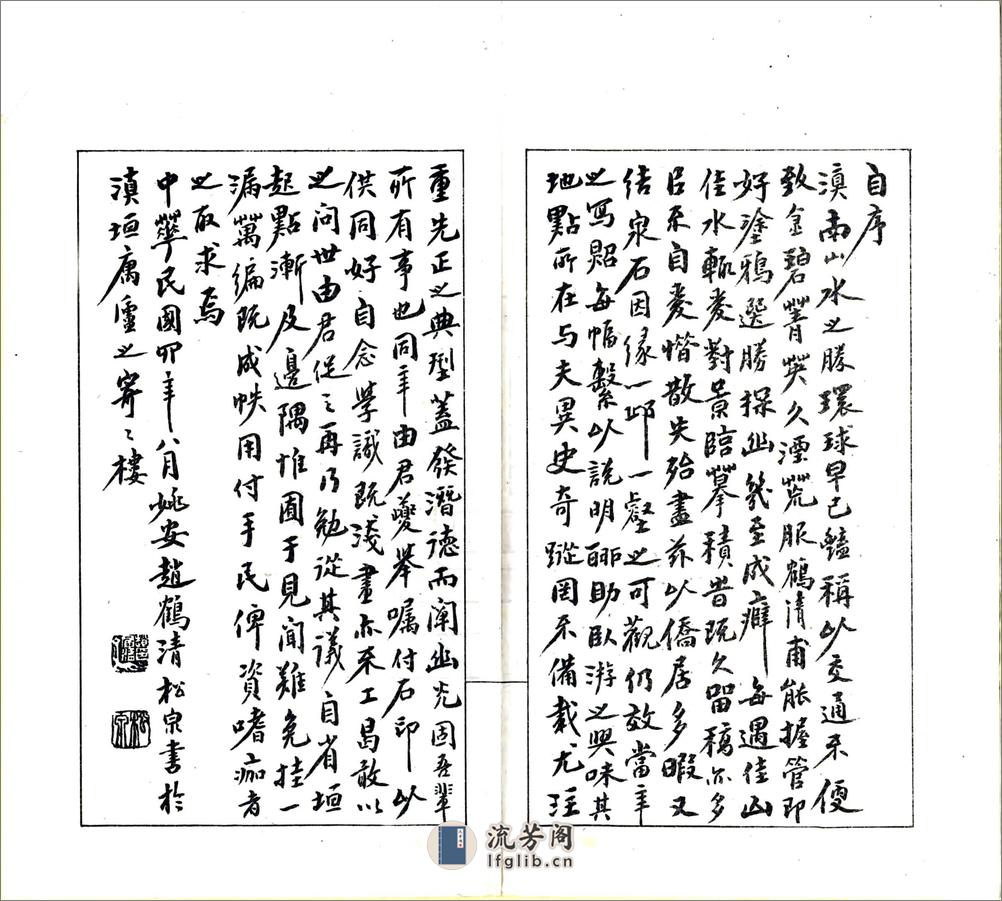 自序
滇南山水之勝環球早已豔稱以交通不便
致金碧菁英久湮荒服鶴清甫能握管即
好塗鴉選勝探幽幾至成癖每遇佳山
佳水輒爰對景臨摹積昔既久留稿亦多
因不自愛惜散失殆盡茲以僑居多暇又
結泉石因緣一邱一壑之可觀仍效當年
之寫照每幅繫以說明聊助臥游之興味其
地點所在与夫異史奇蹤罔不備載尤注
重先正之典型蓋發潛德而闡幽光固吾輩
所有事也同年由君夔舉囑付石印以
供同好自念學識既淺畫亦不工曷敢以
之問世由君促之再乃勉從其議自省垣
起點漸及邊隅惟囿于見聞難免挂一
漏萬編既成帙用付手民俾資嗜痂者
之取求焉
中華民國四年八月姚安趙鶴清松泉書於
滇垣寓廬之寄之樓
松泉
流芳阁
lfglib.cn